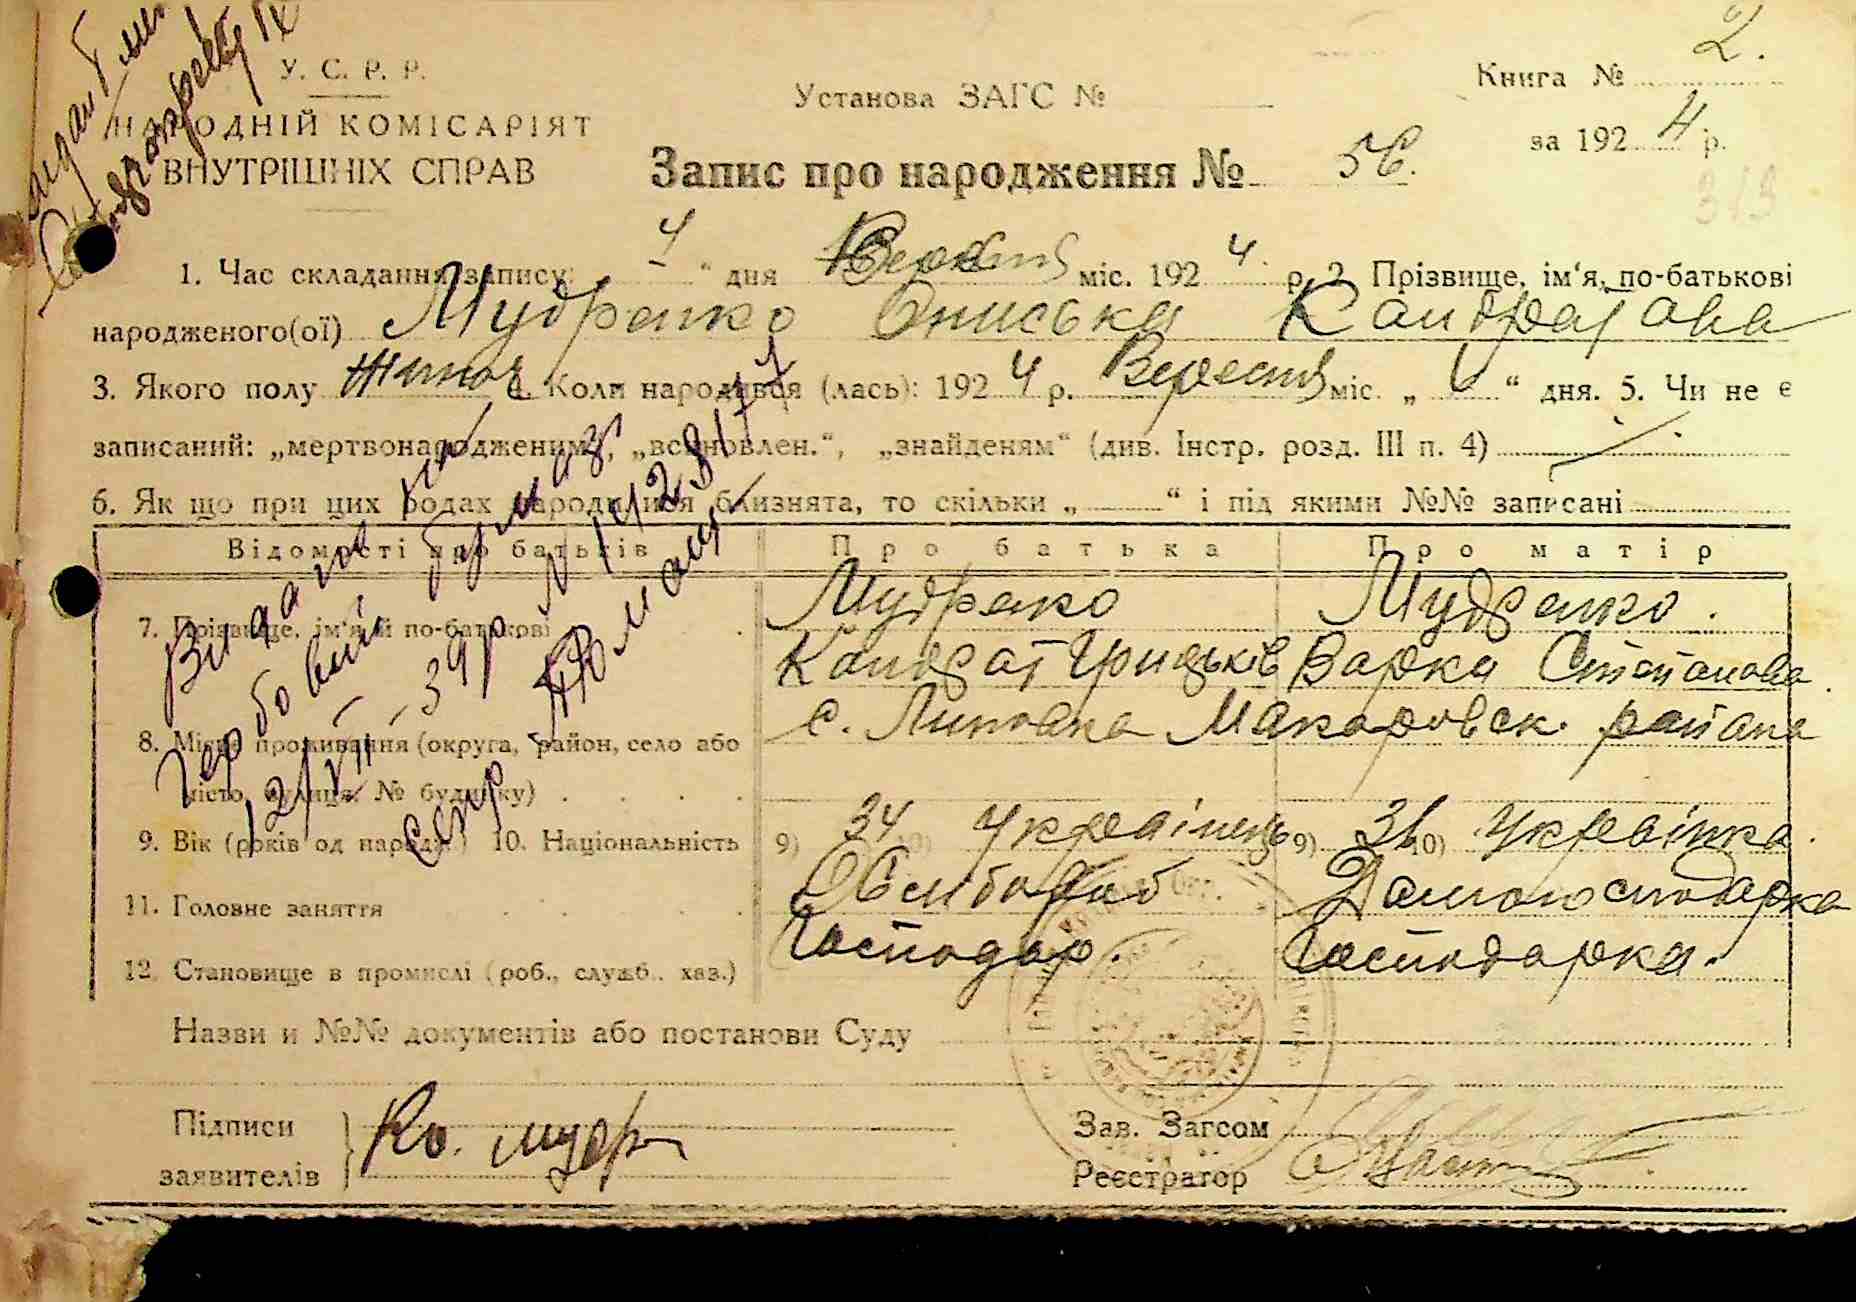 У. С. Р. Р.
НАРОДНІЙ КОМІСАРІЯТ
ВНУТРІШНІХ СПРАВ
Установа ЗАГС №
Книга № 2.
за 1924 р.
Запис про народження № 56.
1. Час складання запису: 4 " дня Вересня міс. 1924 р. 2. Прізвище, ім'я, по-батькові
народженого(ої) Мудренко Ониська Кандратова
3. Якого полу жиноч 4. Коли народився (лась): 1924 р. Вересня міс. „ " дня. 5. Чи не є
записаний: „мертвонародженим", „встановлен.", „знайденям" (див. Інстр. розд. III п. 4)
6. Як що при цих родах народилися близнята, то скільки „ " і під якими №№ записані
Відомості про батьків Про батька Про матір
7. Прізвище, ім'я й по-батькові
Мудренко Мудренко.
Кандрат Грицьків Варка Степанова
8. Місце проживання (округа, район, село або
місто, вулиця, № будинку)
с. Липовка Макаровск. района
9. Вік (років од народж.) 10. Національність 9) 34 10) Українець 9) 31 10) Українка.
11. Головне заняття Хлибороб Домогосподарка
12. Становище в промислі (роб., служб., хаз.) Господар. Господарка.
Назви и №№ документів або постанови Суду
Підписи
заявителів
Ко. мудр
Зав. Загсом
Реєстратор
Видано на
гербовий бумаз
12/VII-39р. № 142817